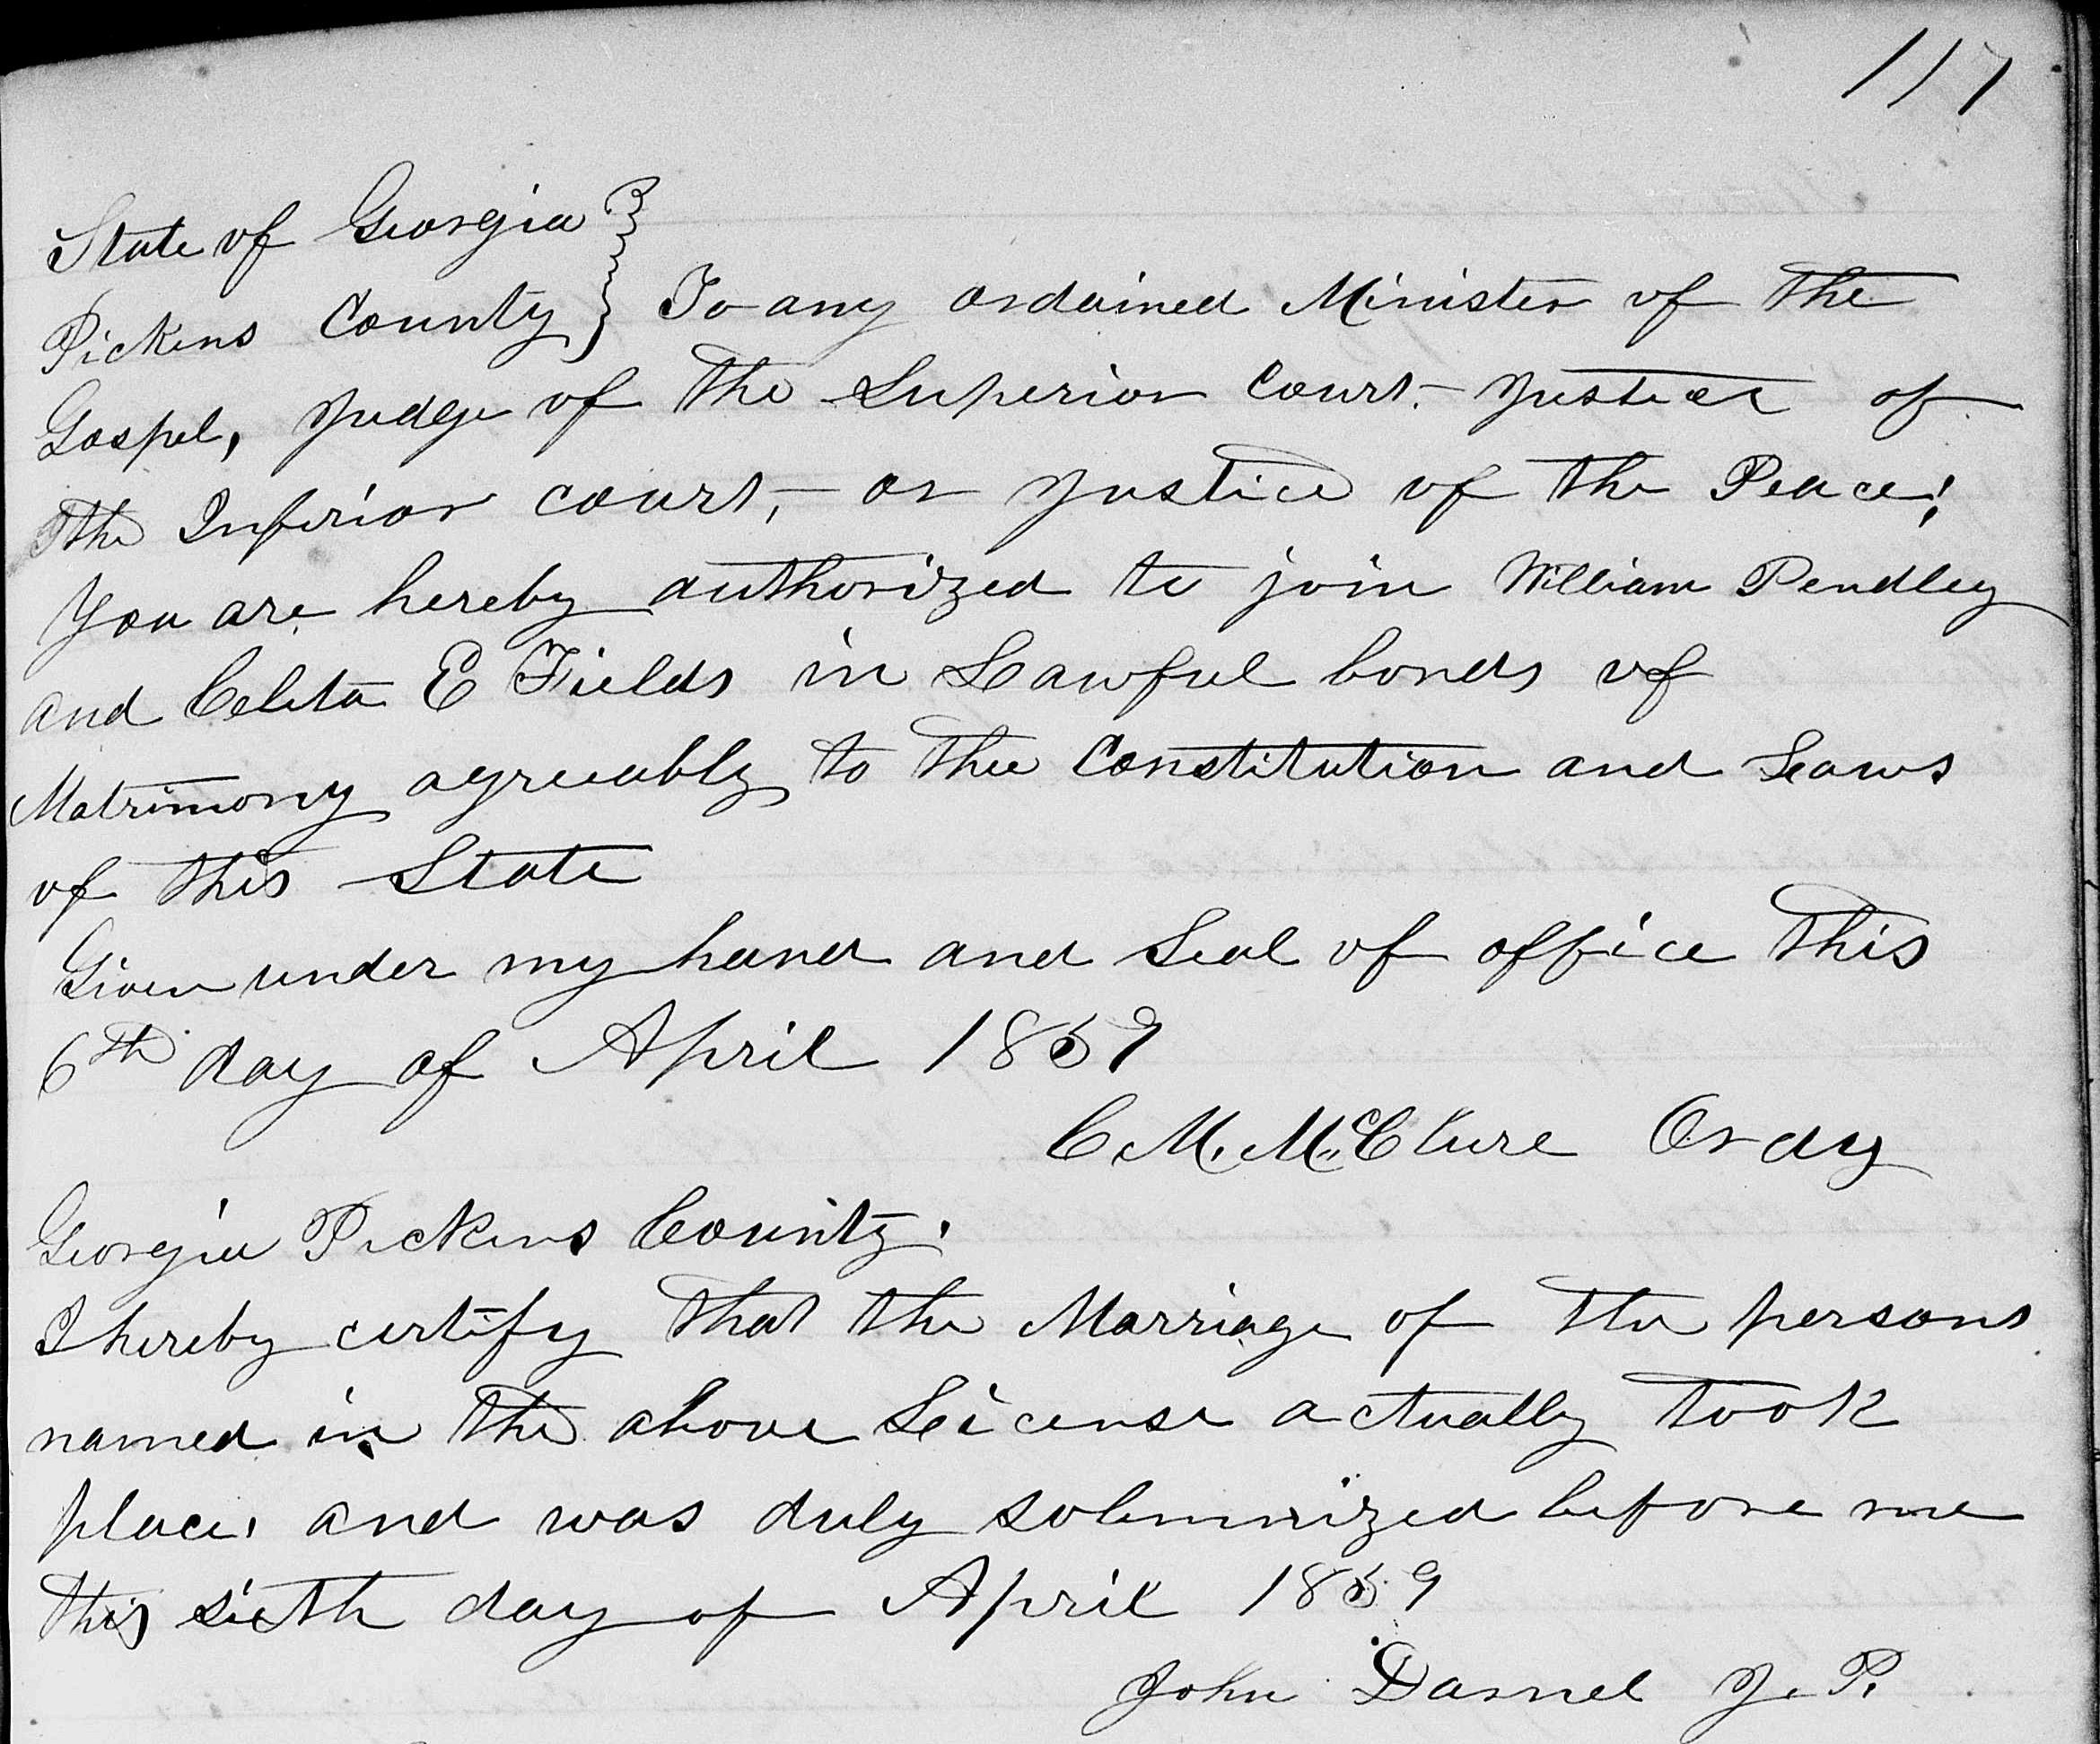 117
State of Georgia
Pickens County } To any ordained Minister of the
Gospel, Judge of the Superior Court - Justice of
the Inferior court, - or Justice of the Peace;
You are hereby authorized to join William Pendley
and Celita E Fields in Lawful bonds of
Matrimony agreeably to thee Constitution and Laws
of this State
Given under my hand and Seal of office this
6th day of April 1859
C M. McClure Ordy
Georgia Pickens County.
I hereby certify that the Marriage of the persons
named in the above License actually took
place. and was duly solemnized before me
this sixth day of April 1859
John Darnel J. P.